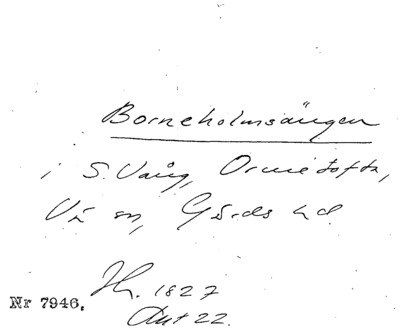 Borneholmsängen
i S. Vång, Ormetofta,
Vä sn, Gärds hd.
Nr 7946.
H. 1827
Akt 22.